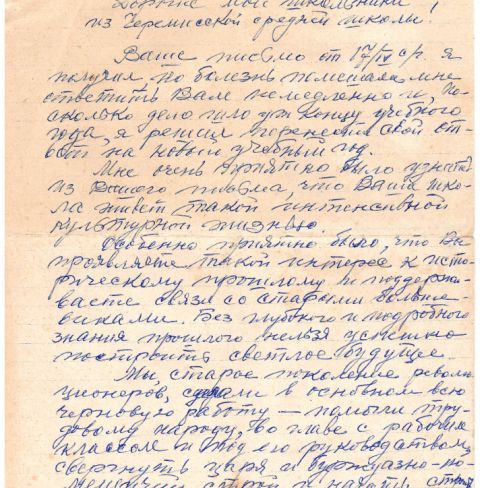 Дорогие мои школьники,
из Черемисской средней школы!
Ваше письмо от 17/IV с/г. я
получил, но болезнь помешала мне
ответить Вам немедленно и, по-
скольку дело шло уж к концу учебного
года, я решил перенести свой от-
вет на новый учебный год.
Мне очень приятно было узнать
из Вашего письма, что Ваша шко-
ла живет такой интенсивной
культурной жизнью.
Особенно приятно было, что Вы
проявляете такой интерес к исто-
рическому прошлому и поддержи-
ваете связи со старыми больше-
виками. Без глубокого и подробного
знания прошлого нельзя успешно
построить светлое будущее.
Мы старое поколение револю-
ционеров, сделали в основном всю
черновую работу — помогли тру-
довому народу, во главе с рабочим
классом и под его руководством,
свергнуть царя и буржуазно-по-
мещичий строй и начать